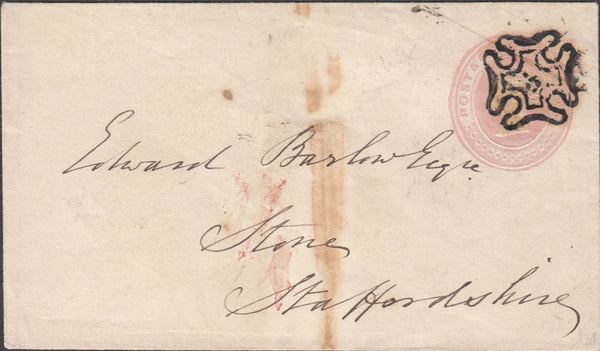 POSTA
Edward Barlow Esqre
Stone
Staffordshire